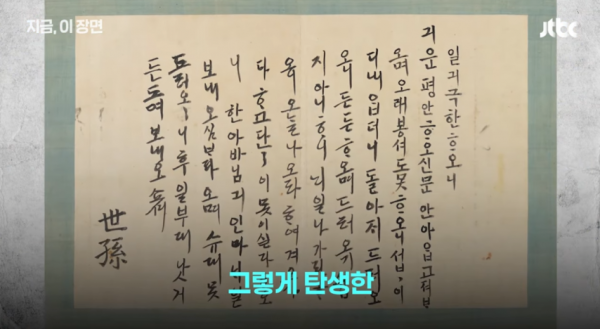 지금, 이 장면
jtbc
일긔극한ᄒᆞ오니
긔운평안ᄒᆞ오신문안아ᄋᆞᆸ고져
오며오래봉셔도못ᄒᆞ오니섭섭이
디내ᄋᆞᆸ더니돌아지드러오
오니든든ᄒᆞ오며드러오기
지아니ᄒᆞ니ᄂᆡ일나가라
오니오ᄂᆞᆯ나오라ᄒᆞ여겨
다ᄒᆞ고단단이못이실다
니한아바님긔인마ᄂᆡ일
보내오심ᄇᆞ라오며슈대못
드러오니후일부대낫거
든드려보내오쇼셔
世孫
그렇게 탄생한